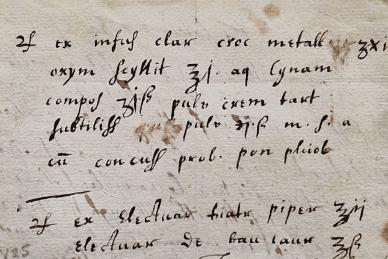 ℞ ex infus clar croc metall ℥xi
oxym scyllit ℥j. aq Cynam
compos ℥iß pulv crem tart
subtiliss pulv ʒj.ß m. f. a
cū concuss prob. pon
℞ ex Electuar diatr piper ℥ij
electuar de bau laur ℥ß